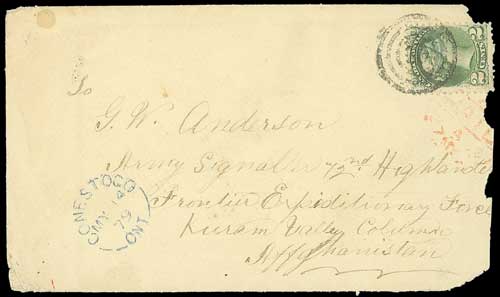 To
G. W. Anderson
Army Signaller 72nd Highlande
Frontier Expeditionary Force
Kuram Valley Column
Affghanistan
CONESTOGO
MY
79
ONT
2
2
CENTS